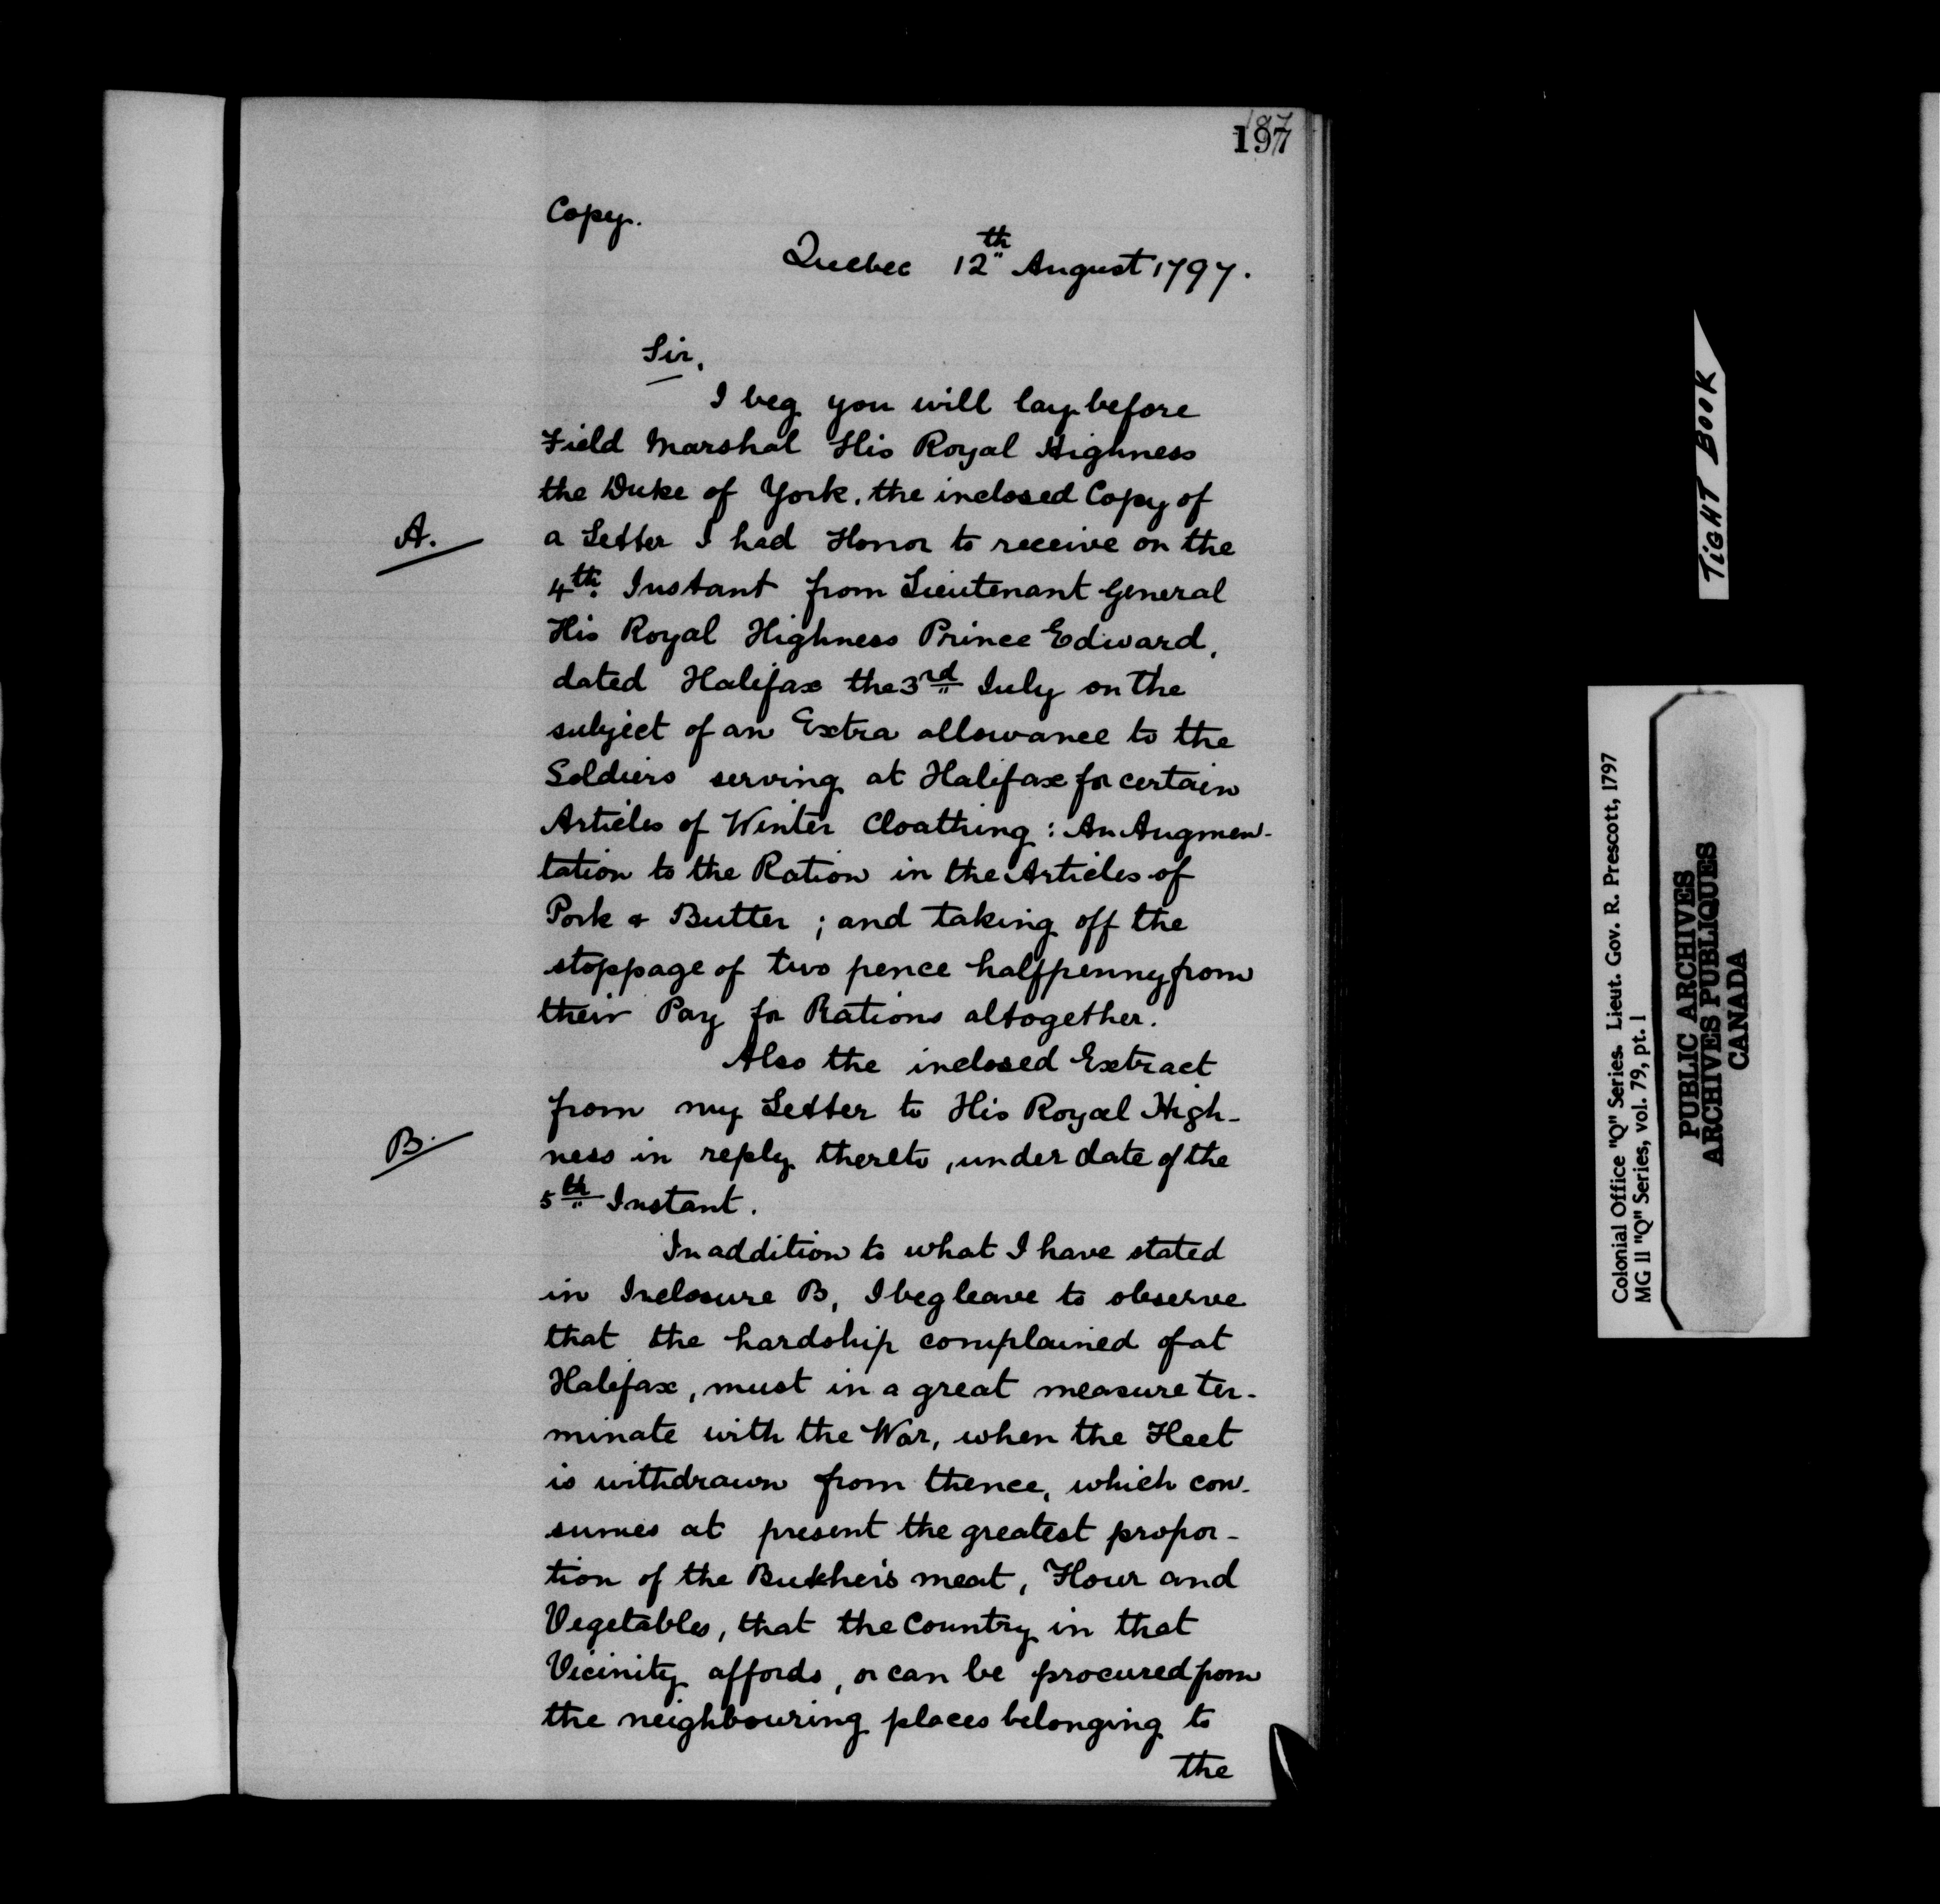 187
197
Copy.
Quebec 12th August 1797.
Sir,
I beg you will lay before
Field Marshal His Royal Highness
the Duke of York, the inclosed Copy of
A.
a Letter I had Honor to receive on the
4th Instant from Lieutenant General
His Royal Highness Prince Edward,
dated Halifax the 3rd July on the
subject of an Extra allowance to the
Soldiers serving at Halifax for certain
Articles of Winter Cloathing : An Augmen-
tation to the Ration in the Articles of
Pork & Butter ; and taking off the
stoppage of two pence halfpenny from
their Pay for Rations altogether.
Also the inclosed Extract
from my Letter to His Royal High-
B.
ness in reply thereto, under date of the
5th Instant.
In addition to what I have stated
in Inclosure B, I beg leave to observe
that the hardship complained of at
Halifax, must in a great measure ter-
minate with the War, when the Fleet
is withdrawn from thence, which con-
sumes at present the greatest propor-
tion of the Butcher's meat, Flour and
Vegetables, that the Country in that
Vicinity affords, or can be procured from
the neighbouring places belonging to
the
TIGHT BOOK
Colonial Office "Q" Series. Lieut. Gov. R. Prescott, 1797
MG 11 "Q" Series, vol. 79, pt. 1
PUBLIC ARCHIVES
ARCHIVES PUBLIQUES
CANADA